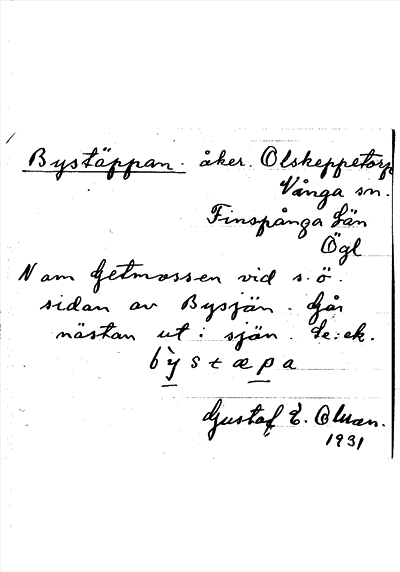 Bystäppan. åker. Olskeppetorp
Vånga sn.
Finspånga län
Ögl
N om Getmossen vid s.ö.
sidan av Bysjön. Går
nästan ut i sjön. Se: ek.
bỳstæpa
Gustaf E. Olsson.
1931